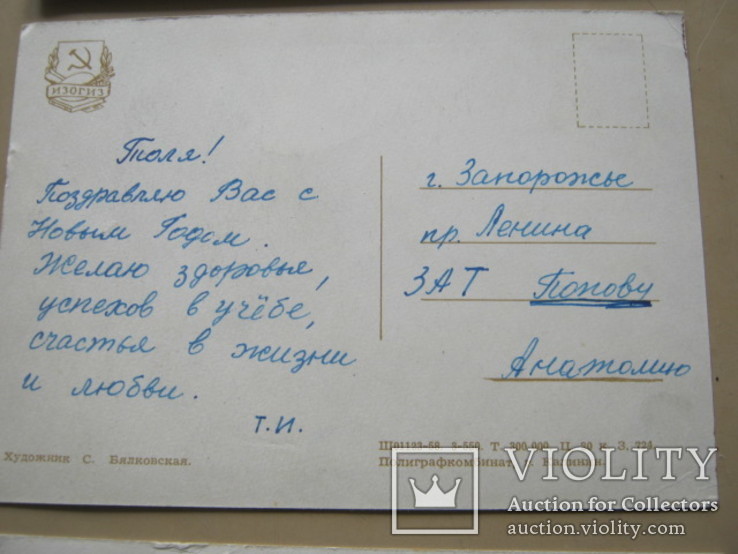 ИЗОГИЗ
Толя!
Поздравляю Вас с
Новым Годом.
Желаю здоровья,
успехов в учёбе,
счастья в жизни
и любви.
Т.И.
г. Запорожье
пр. Ленина
ЗАТ Попову
Анатолию
Художник С. Бялковская.
Ш01123-58. 3-550. Т. 300.000. Ц. 30 к. З. 724
Полиграфкомбинат, г. Калинин.
VIOLITY
Auction for Collectors
auction.violity.com